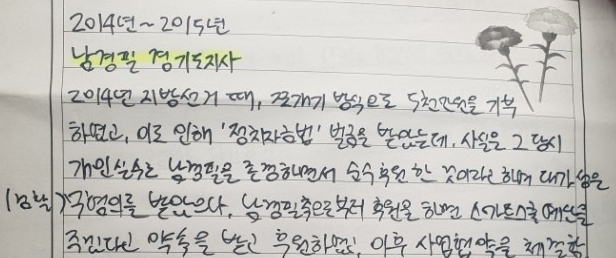 2014년~2015년
남경필 경기도지사
2014년 지방선거 때, 쪼개기 방식으로 5천만원을 기부
하였고, 이로 인해 '정치자금법' 벌금을 받았는데, 사실은 그 당시
개인실수로 남경필을 존경하면서 순수후원 한 것이라 하며 대가성은
(검찰) 무혐의를 받았으나, 남경필측으로부터 후원을 하면 예산을
준다는 약속을 받고 후원하였고, 이후 사업협약을 체결함